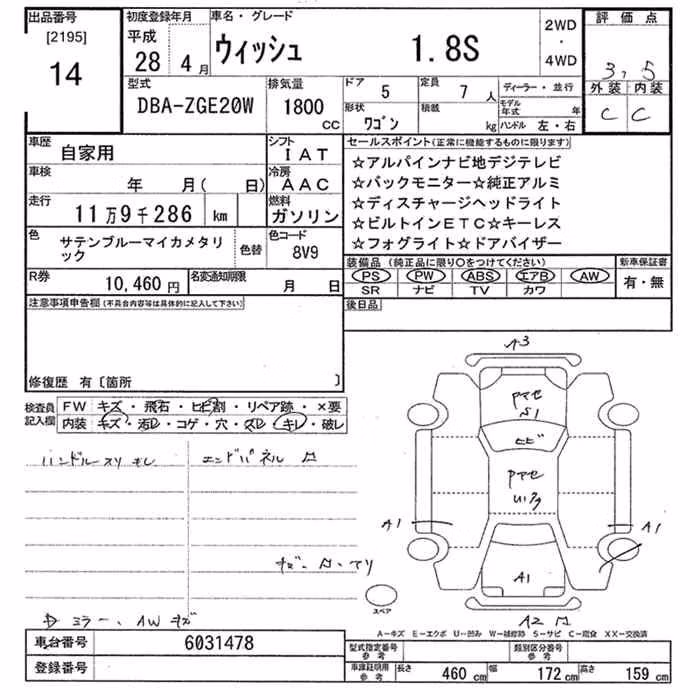 出品番号
[2195]
14
初度登録年月
平成
28 4月
車名・グレード
ウィッシュ 1.8S
2WD
・
4WD
評価点
3.5
外装 内装
C C
型式
DBA-ZGE20W
排気量
1800
CC
ドア 5
定員 7 人
形状 ワゴン
積載 kg
ディーラー・並行
モデル年式 年
ハンドル 左・右
車歴 自家用
車検 年 月( 日)
走行 11万9千286 km
シフト IAT
冷房 AAC
燃料 ガソリン
色 サテンブルーマイカメタリック
色替
色コード 8V9
R券 10,460円
名変通知期限 月 日
セールスポイント(正常に機能するものに限ります)
☆アルパインナビ地デジテレビ
☆バックモニター☆純正アルミ
☆ディスチャージヘッドライト
☆ビルトインETC☆キーレス
☆フォグライト☆ドアバイザー
装備品(純正品に限り○をつけてください)
PS PW ABS エアB AW
SR ナビ TV カワ
新車保証書
有・無
後日品
注意事項申告欄(不具合内容等は具体的に記入して下さい)
修復歴 有〔箇所 〕
検査員記入欄
FW キズ・飛石・ヒビ割・リペア跡・×要
内装 キズ・汚レ・コゲ・穴・スレ・キレ・破レ
ハンドルスリ キレ
エンドパネル
ミラー、AWキズ
A3
S1
ヒビ
A1
A1
A1
A2
スペア
A-キズ E-エクボ U-凹み W-補修跡 S-サビ C-腐食 XX-交換済
車台番号 6031478
登録番号
型式指定番号 参考
類別区分番号 参考
車庫証明用 参考 長さ 460cm 幅 172cm 高さ 159cm